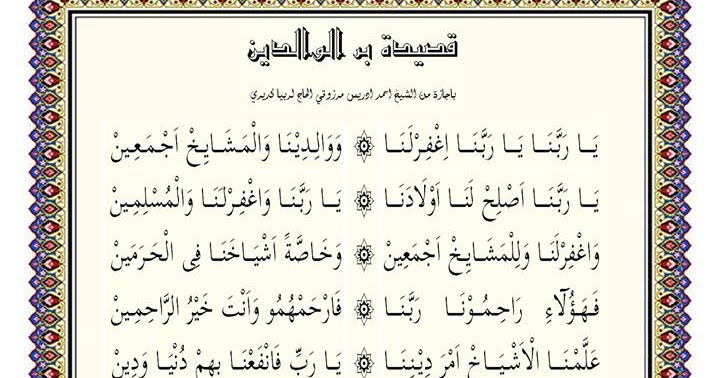 قصيدة بر الوالدين
باجازة من الشيخ احمد ادريس مرزوقي الحاج لربيا كديري
يَا رَبَّنَا يَا رَبَّنَا اِغْفِرْلَنَا ۞ وَوَالِدِيْنَا وَالْمَشَايِخْ اَجْمَعِيْنْ
يَا رَبَّنَا اَصْلِحْ لَنَا اَوْلَادَنَا ۞ يَا رَبَّنَا وَاغْفِرْلَنَا وَالْمُسْلِمِيْنْ
وَاغْفِرْلَنَا وَلِلْمَشَايِخْ اَجْمَعِيْنْ ۞ وَخَاصَّةً اَشْيَاخَنَا فِى الْحَرَمَيْنْ
فَهَؤُلَآءِ رَاحِمُوْنَا رَبَّنَا ۞ فَارْحَمْهُمُو وَاَنْتَ خَيْرُ الرَّاحِمِيْنْ
عَلَّمْنَا الْاَشْيَاخْ اَمْرَ دِيْنِنَا ۞ يَا رَبِّ فَانْفَعْنَا بِهِمْ دُنْيَا وَدِيْنْ